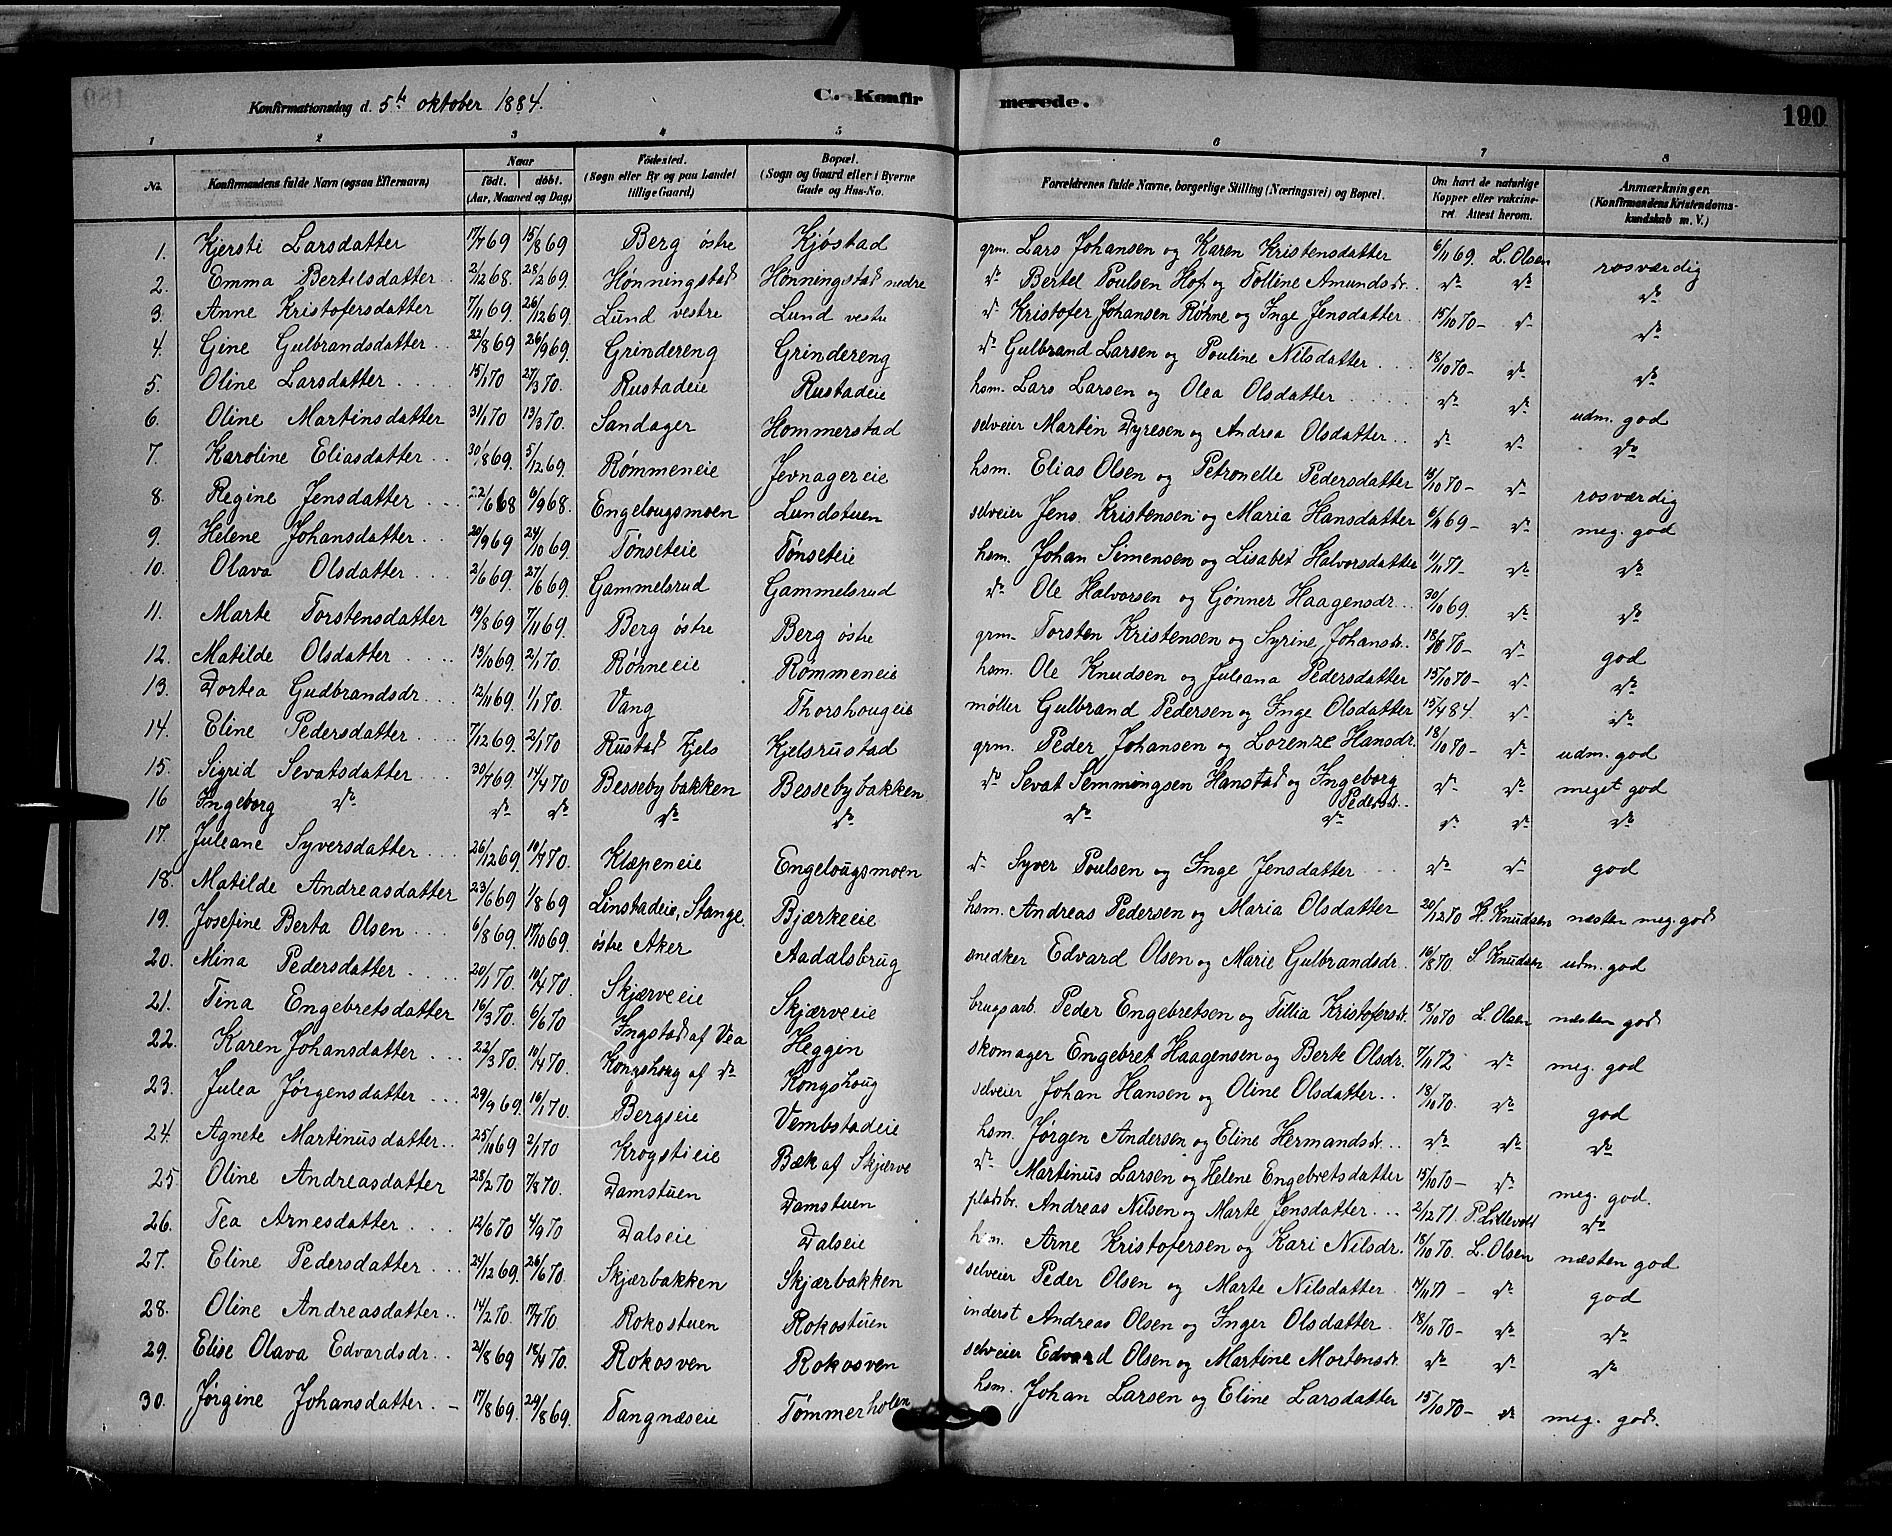 Konfirmationsdag d. 5te oktober 1884. C. Konfirmerede. 190
1 2 3 4 5 6 7 8
No. Konfirmandens fulde Navn (ogsaa Efternavn) Naar født. døbt. (Aar, Maaned og Dag) Fødested. (Sogn eller By og paa Landet tillige Gaard) Bopæl. (Sogn og Gaard eller i Byerne Gade og Hus-No. Forældrenes fulde Navne, borgerlige Stilling (Næringsvei) og Bopæl. Om havt de naturlige Kopper eller vakcineret. Attest herom. Anmærkninger. (Konfirmandens Kristendomskundskab m. V.)
1. Kjersti Larsdatter 17/7 69 15/8 69 Berg østre Kjøstad grm. Lars Johansen og Karen Kristensdatter 6/11 69. L. Olsen rosværdig
2. Emma Bertelsdatter 2/12 68. 28/2 69. Hønningstad Hønningstad nedre do Bertel Poulsen Hof og Tolline Amundsdr. do do do
3. Anne Kristofersdatter 7/11 69. 26/12 69. Lund vestre Lund vestre do Kristofer Johansen Røhne og Inge Jensdatter 15/10 70 - do do
4. Gine Gulbrandsdatter 22/8 69 26/9 69. Grindereng Grindereng do Gulbrand Larsen og Pouline Nilsdatter 18/10 70 - do do
5. Oline Larsdatter 15/1 70 27/3 70. Rustadeie Rustadeie hsm. Lars Larsen og Olea Olsdatter do do udm. god
6. Oline Martinsdatter 31/1 70 13/3 70. Sandager Hommerstad selveier Martin Dyresen og Andrea Olsdatter do do do
7. Karoline Eliasdatter 30/8 69. 5/12 69. Rømmeneie Jevnagereie hsm. Elias Olsen og Petronelle Pedersdatter 15/10 70 - do rosværdig
8. Regine Jensdatter 22/6 68 6/9 68. Engelougsmoen Lundstuen selveier Jens Kristensen og Maria Hansdatter 6/11 69 - do meg. god
9. Helene Johansdatter 20/9 69 24/10 69. Tønseteie Tønseteie hsm. Johan Simensen og Lisabet Halvorsdatter 1/11 71 - do do
10. Olava Olsdatter 2/6 69. 27/6 69. Gammelsrud Gammelsrud do Ole Halvorsen og Gønner Haagensdr. 30/10 69. do do
11. Marte Torstensdatter 19/8 69 7/11 69. Berg østre Berg østre grm. Torsten Kristensen og Syrine Johansdr. 18/10 70 - do god
12. Matilde Olsdatter 13/10 69. 2/1 70. Røhneeie Rømmeneie hsm. Ole Knudsen og Juliana Pedersdatter 15/10 70 - do do
13. Dortea Gudbrandsdr. 12/11 69. 1/1 70. Vang Thorshougeie møller Gulbrand Pedersen og Inge Olsdatter 15/4 84. do do
14. Eline Pedersdatter 7/12 69. 2/1 70 Rustad Kjels Kjelsrustad grm. Peder Johansen og Lorenze Hansdr. 18/10 70 - do udm. god
15. Sigrid Sevatsdatter 30/7 69. 14/4 70 Bessebybakken Bessebybakken do Sevat Semmingsen Hanstad og Ingeborg Pedersdr. do do meget god
16 Ingeborg do do do do do do do do do do
17. Juleane Syversdatter 26/12 69. 10/7 70. Klæpeneie Engelougsmoen do Syver Poulsen og Inge Jensdatter do do god
18. Matilde Andreasdatter 23/6 69 1/8 69 Linstadeie, Stange. Bjærkeeie hsm. Andreas Pedersen og Maria Olsdatter 20/12 70 H. Knudsen næsten meg. god
19. Josefine Berta Olsen 6/8 69. 17/10 69. østre Aker Aadalsbrug snedker Edvard Olsen og Marie Gulbrandsdr. 16/8 70. S. Knudsen udm. god
20. Mina Pedersdatter 20/1 70. 10/4 70. Skjærveeie Skjærveeie brugsarb. Peder Engebretsen og Tillia Kristofersdr. 18/10 70 L. Olsen næsten god
21. Tina Engebretsdatter 16/3 70. 6/6 70 Ingstad af Vea Heggen skomager Engebret Haagensen og Berte Olsdr. 7/11 72 do meg. god
22. Karen Johansdatter 22/3 70. 10/4 70. Kongshoug af do Kongshoug selveier Johan Hansen og Oline Olsdatter 18/10 70. do god
23. Julea Jørgensdatter 29/9 69. 16/1 70. Bergseie Vembstadeie hsm. Jørgen Andersen og Eline Hermandsdr. do do do
24. Agnete Martinusdatter 25/10 69 2/1 70 Krogstieie Bæk af Skjærve do Martinus Larsen og Helene Engebretsdatter 15/10 70 - do meg. god.
25 Oline Andreasdatter 28/2 70 7/8 70. Damstuen Damstuen pladsbr. Andreas Nilsen og Marte Jensdatter 2/12 71. P. Lillevold do
26. Tea Arnesdatter 12/6 70 4/9 70 Dalseie Dalseie hsm. Arne Kristofersen og Kari Nilsdr. 18/10 70. L. Olsen næsten god
27. Eline Pedersdatter 24/12 69. 26/6 70. Skjærbakken Skjærbakken selveier Peder Olsen og Marte Nilsdatter do god
28. Oline Andreasdatter 14/2 70. 17/7 70. Rokostuen Rokostuen inderst Andreas Olsen og Inger Olsdatter 18/10 70 - do do
29. Elise Olava Edvardsdr. 21/8 69 18/4 70. Rokosven Rokosven selveier Edvard Olsen og Martine Mortensdr. do do do
30. Jørgine Johansdatter 17/8 69. 29/8 69. Tangnæseie Tømmerholen hsm. Johan Larsen og Eline Larsdatter 15/10 70 - do meg. god.